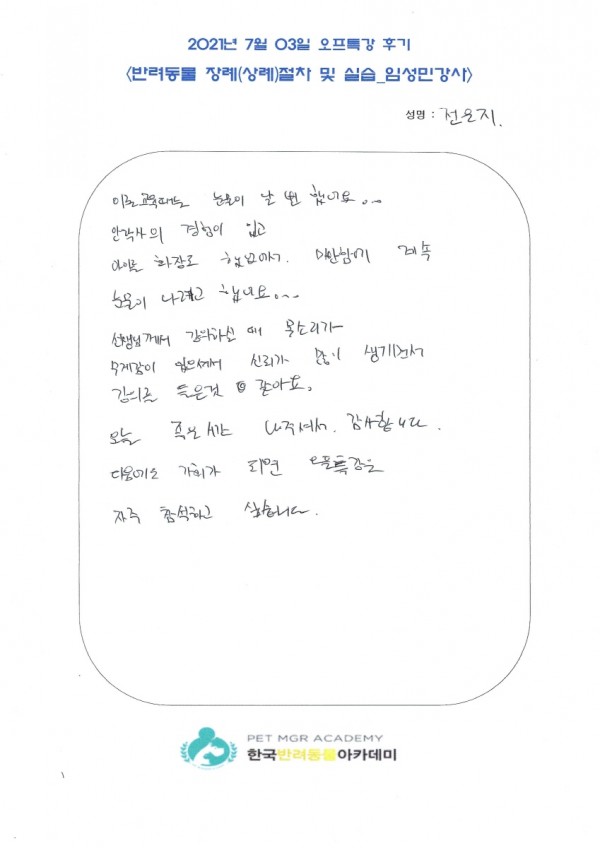 2021년 7월 03일 오프특강 후기
<반려동물 장례(상례)절차 및 실습_임성민강사>
성명 : 전은지.
이론교육때는 눈물이 날 뻔 했네요...
안락사의 경험이 있고
아이를 화장도 했었어서. 미안함에 계속
눈물이 나려고 했네요...
선생님께서 강의하실 때 목소리가
무게감이 있으셔서 신뢰가 많이 생기면서
강의를 들은것 같아요.
오늘 좋은 시간 내주셔서. 감사합니다.
다음에도 기회가 되면 오프특강을
자주 참석하고 싶습니다.
PET MGR ACADEMY
한국반려동물아카데미